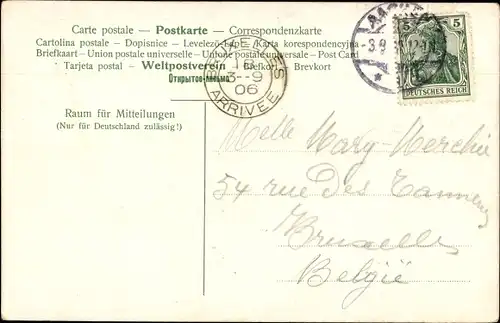 Carte postale — Postkarte — Correspondenzkarte
Cartolina postale – Dopisnice – Levelező-Lap – Karta korespondencyjna
Briefkaart – Union postale universelle – Unione postale universale – Post Card
Tarjeta postal – Weltpostverein – Brefkort – Brevkort
Открытое письмо
AACHEN
3.9
5
DEUTSCHES REICH
3–9
06
ARRIVÉE
Raum für Mitteilungen
(Nur für Deutschland zulässig!)
Melle Mary Merchie
54 rue des Tanneurs
Bruxelles
België